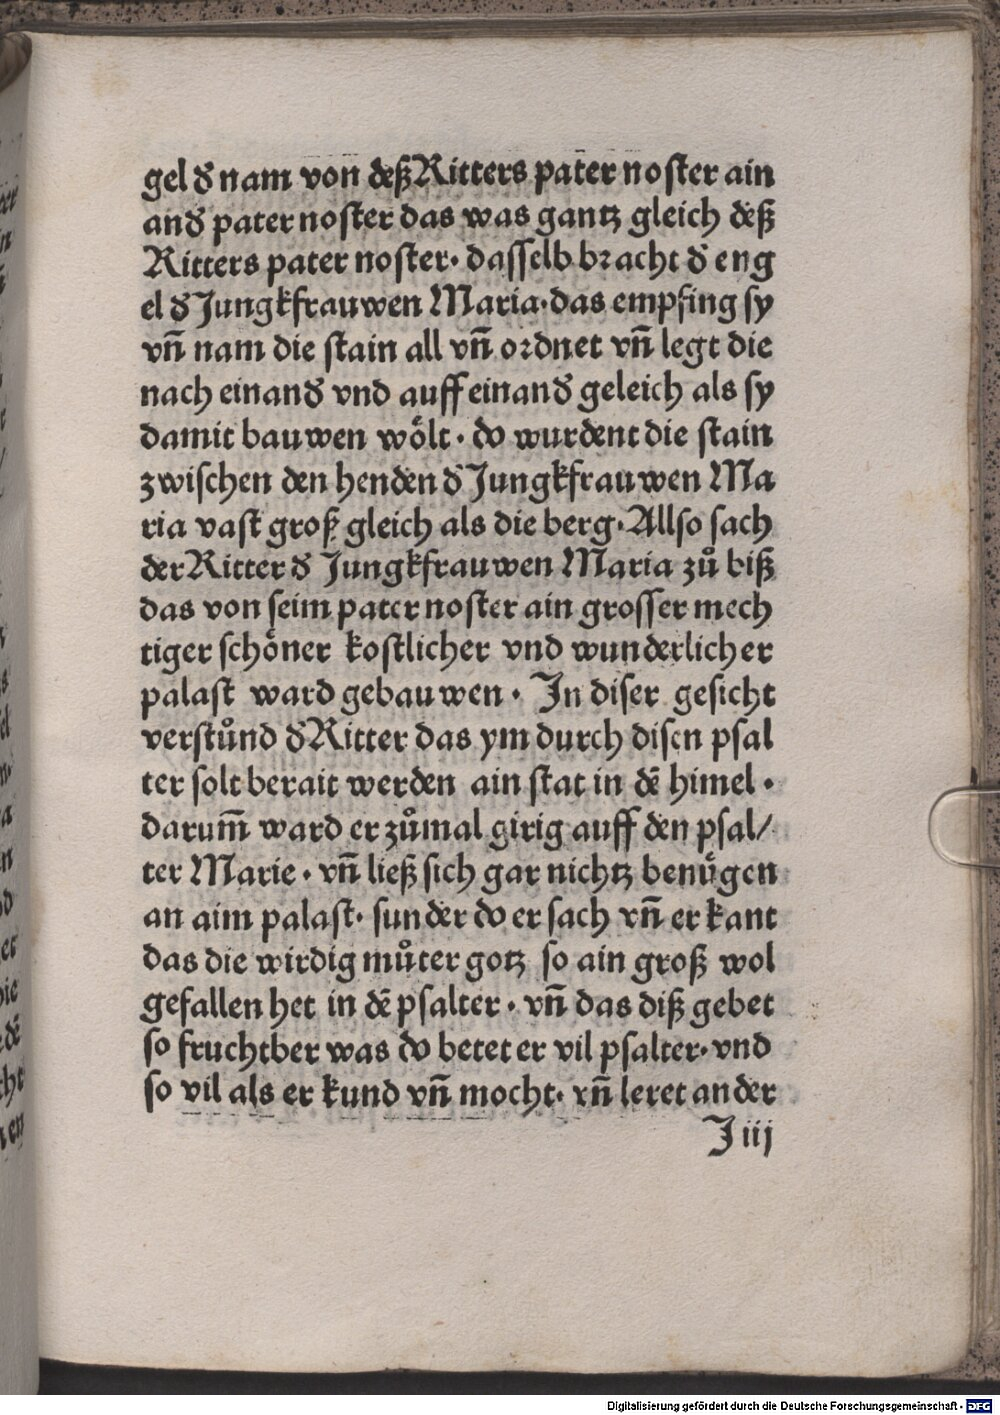 gel đ nam von deß Ritters pater noſter ain
anđ pater noſter das was gantz gleich deß
Ritters pater noſter· daſſelb bꝛacht đ eng
el đ Jungkfrauwen Maria·das empfing ſy
vn̄ nam die ſtain all vn̄ oꝛdnet vn̄ legt die
nach einanđ vnd auff einanđ geleich als ſy
damit bauwen woͤlt· do wurdent die ſtain
zwiſchen den henden đ Jungkfrauwen Ma
ria vaſt groß gleich als die berg·Allſo ſach
der Ritter đ Jungkfrauwen Maria zuͦ biß
das von ſeim pater noſter ain groſſer mech
tiger ſchoͤner koſtlicher vnd wunderlicher
palaſt ward gebauwen· In diſer geſicht
verſtuͦnd đ Ritter das ym durch diſen pſal
ter ſolt berait werden ain ſtat in dē himel·
darum̄ ward er zuͦmal girig auff den pſal/
ter Marie· vn̄ ließ ſich gar nichtz benuͤgen
an aim palaſt· ſunder do er ſach vn̄ erkant
das die wirdig muͦter gotz ſo ain groß wol
gefallen het in dē pſalter· vn̄ das diß gebet
ſo fruchtber was do betet er vil pſalter·vnd
ſo vil als er kund vn̄ mocht· vn̄ leret ander
J iij
Digitalisierung gefördert durch die Deutsche Forschungsgemeinschaft - DFG